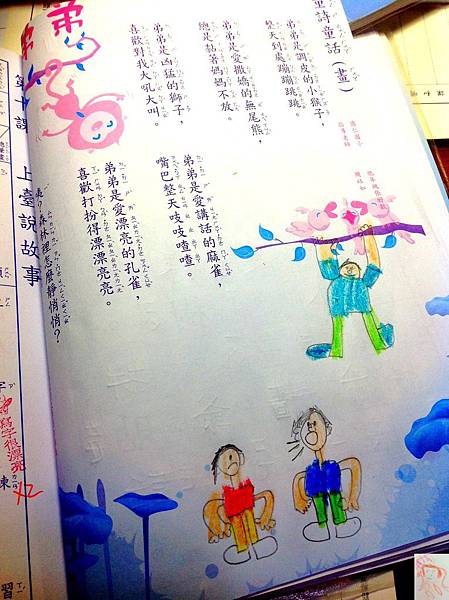 童詩童話(畫)
弟弟
弟弟是調皮的小猴子,
整天到處蹦蹦跳跳。
弟弟是愛撒嬌的無尾熊,
總是黏著媽媽不放。
弟弟是凶猛的獅子,
喜歡對我大吼大叫。
弟弟是愛講話的麻雀,
嘴巴整天吱吱喳喳。
弟弟是愛漂亮的孔雀,
喜歡打扮得漂漂亮亮。
第十課 上臺說故事
森林裡怎麼靜悄悄?
寫字很漂亮
x2
習